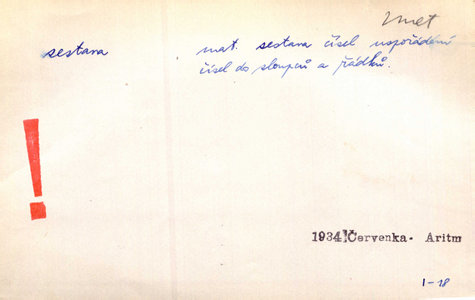 zmet
sestava mat. sestava čísel uspořádání
čísel do sloupců a řádků.
!
1934 Červenka - Aritm
1-18